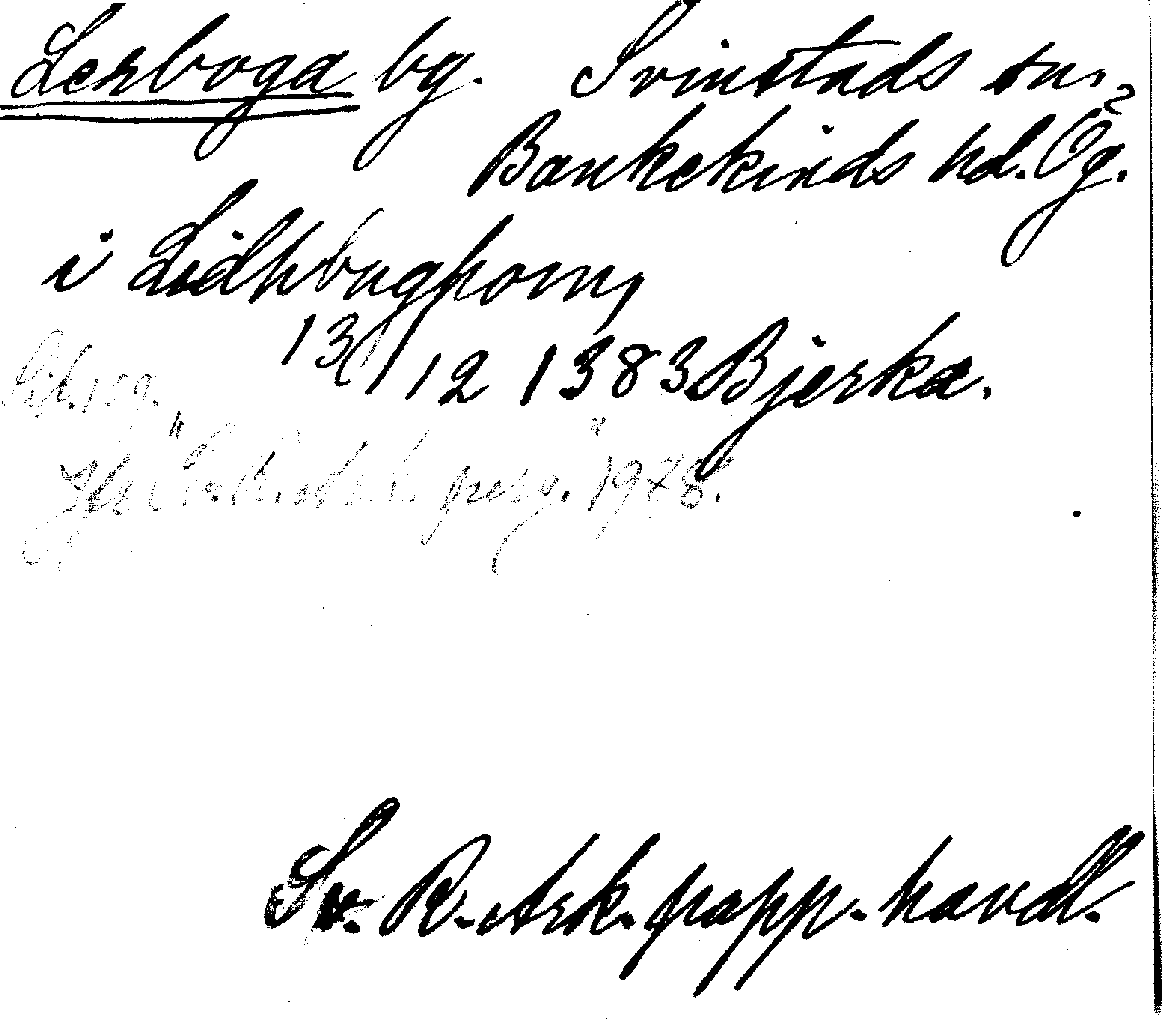 Lerboga bg. Svinstads sn.,
Bankekinds hd. Ög.
i Lidhbughom,
13/12 1383 Bjerka.
perg. 1978.
Sv. R. Ark. papp. handl.